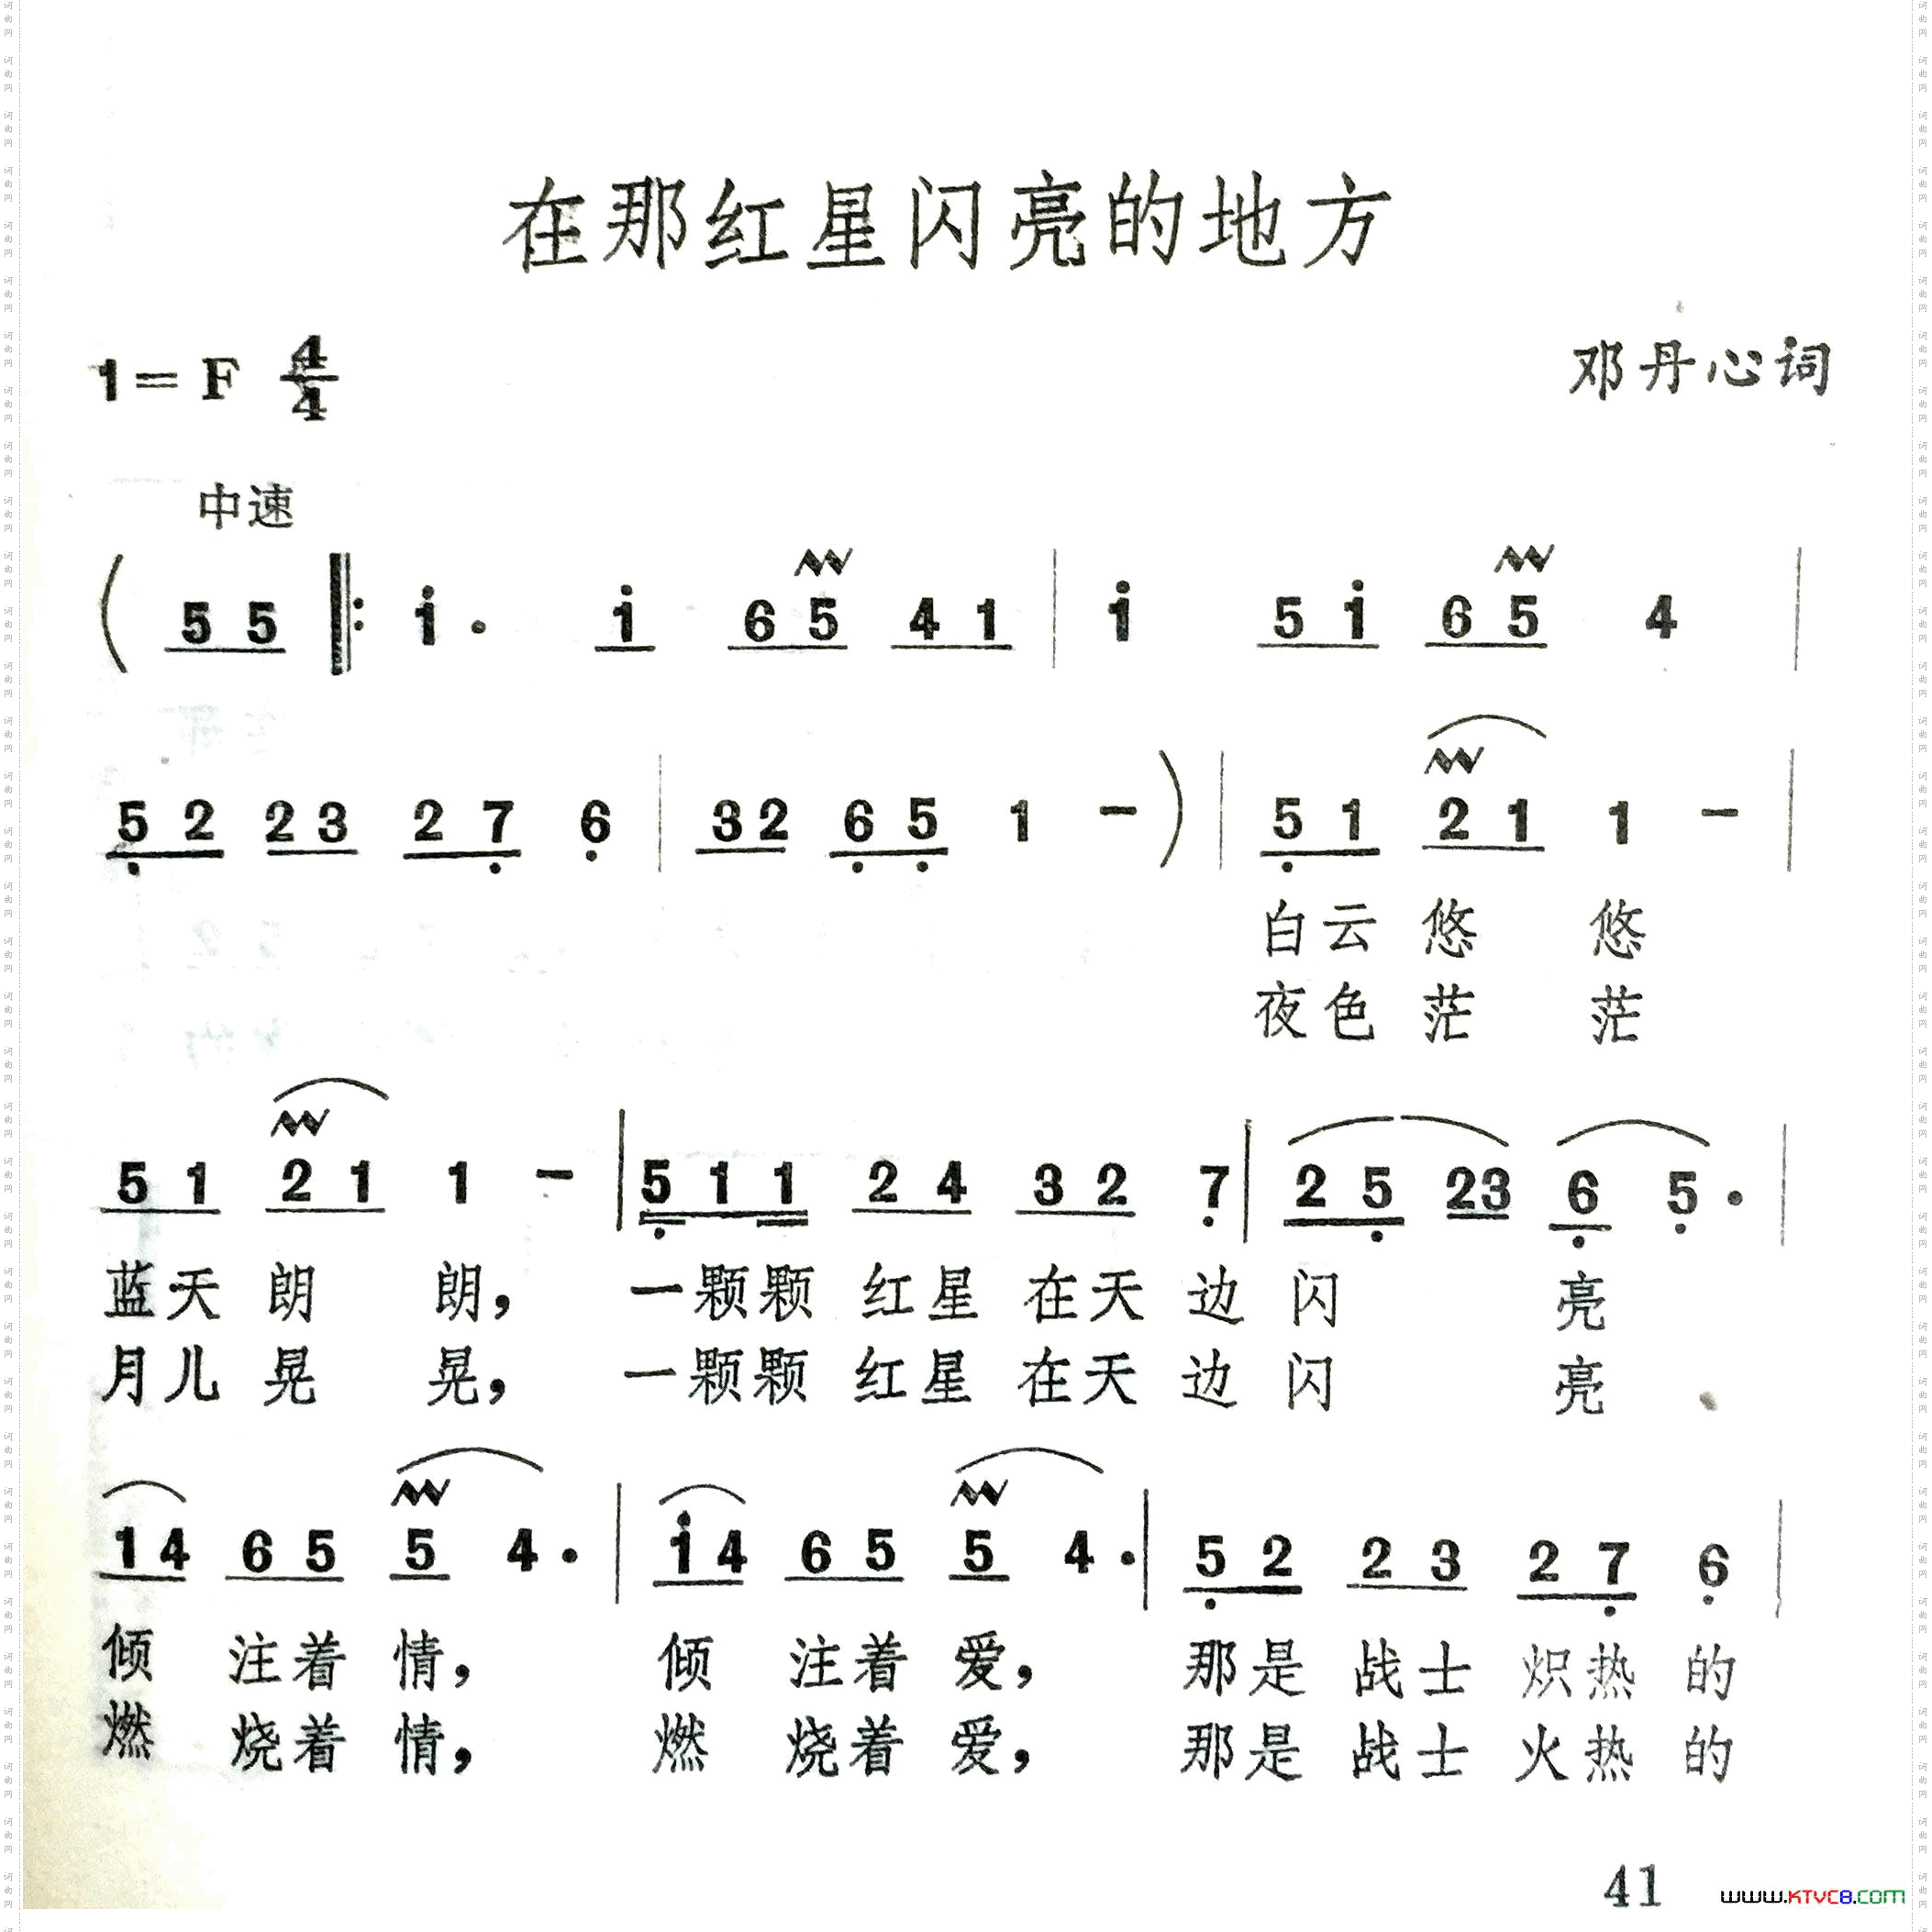 在那红星闪亮的地方
1=F 4/4
邓丹心词
中速
( 5 5 ‖: i· i 6 5 4 1 | i 5 i 6 5 4 |
5 2 2 3 2 7 6 | 3 2 6 5 1 - ) | 5 1 2 1 1 - |
白云悠 悠
夜色茫 茫
5 1 2 1 1 - | 5 1 1 2 4 3 2 7 | 2 5 2 3 6 5· |
蓝天朗 朗, 一颗颗 红星 在天 边 闪 亮
月儿晃 晃, 一颗颗 红星 在天 边 闪 亮
1 4 6 5 5 4· | i 4 6 5 5 4· | 5 2 2 3 2 7 6 |
倾 注着 情, 倾 注着 爱, 那是 战士 炽热 的
燃 烧着 情, 燃 烧着 爱, 那是 战士 火热 的
41
www.KTVC8.COM